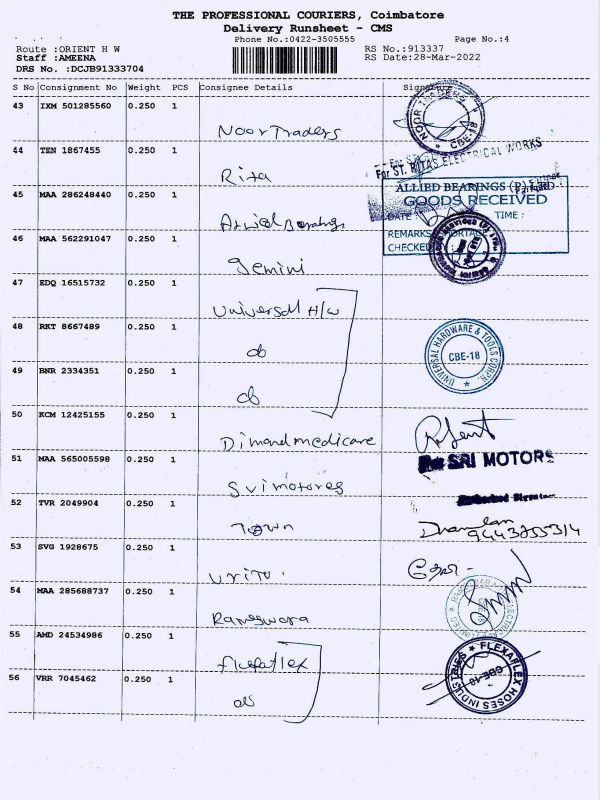 THE PROFESSIONAL COURIERS, Coimbatore
Delivery Runsheet - CMS
Phone No.:0422-3505555 Page No.:4
Route :ORIENT H W RS No.:913337
Staff :AMEENA RS Date:28-Mar-2022
DRS No. :DCJB91333704
S No Consignment No Weight PCS Consignee Details Signature
43 IXM 501285560 0.250 1 NOOR TRADERS CBE-18
Noor Traders
44 TEN 1867455 0.250 1 For ST. RITAS ELECTRICAL WORKS
Rita
45 MAA 286248440 0.250 1 ALLIED BEARINGS (P) LTD
GOODS RECEIVED
DATE : TIME :
REMARKS
CHECKED
46 MAA 562291047 0.250 1
Gemini
47 EDQ 16515732 0.250 1
Universal H/w
48 RKT 8667489 0.250 1 UNIVERSAL HARDWARE & TOOLS CORPN. CBE-18
do
49 BNR 2334351 0.250 1
do
50 KCM 12425155 0.250 1
Dimond medicare
51 MAA 565005598 0.250 1 SRI MOTORS
Sri motores
52 TVR 2049904 0.250 1
Town 9443255314
53 SVG 1928675 0.250 1
54 MAA 285688737 0.250 1
55 AMD 24534986 0.250 1 FLEXAFLEX HOSES INDUSTRIES CBE-18
56 VRR 7045462 0.250 1
do